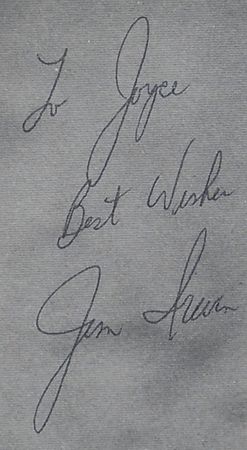 To Joyce
Best Wishes
Jim Irwin